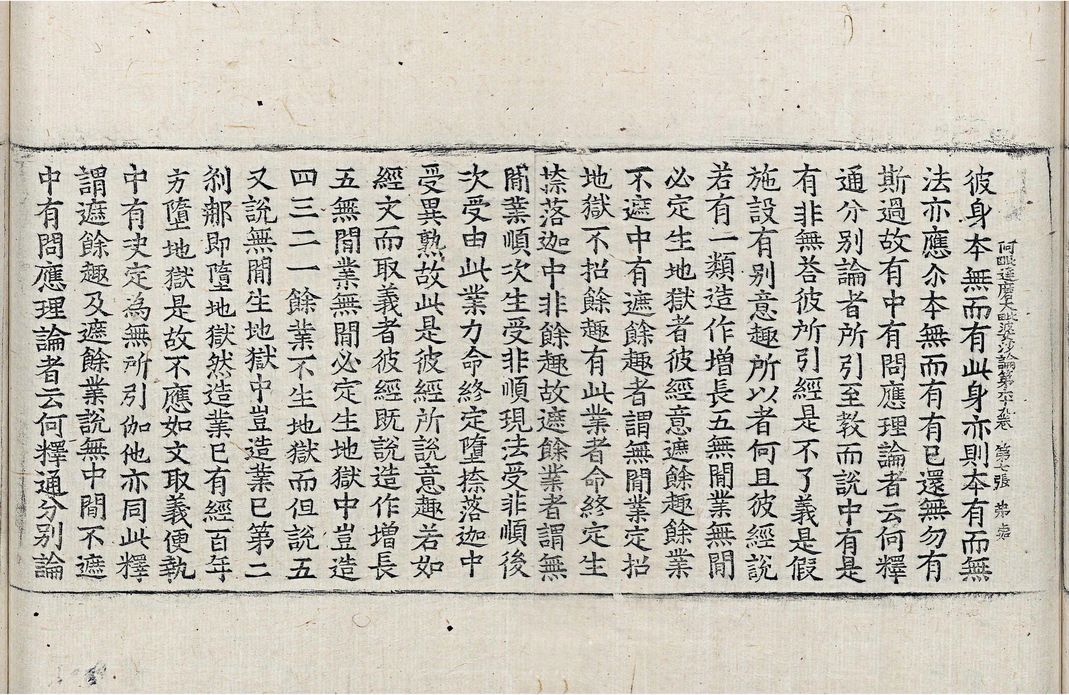 阿毗達磨大毗婆沙論第六十九卷 第七張 弟
彼身本無而有此身亦則本有而無
法亦應尒本無而有有已還無勿有
斯過故有中有問應理論者云何釋
通分別論者所引至教而說中有是
有非無荅彼所引經是不了義是假
施設有別意趣所以者何且彼經說
若有一類造作增長五無間業無間
必定生地獄者彼經意遮餘趣餘業
不遮中有遮餘趣者謂無間業定招
地獄不招餘趣有此業者命終定生
捺落迦中非餘趣故遮餘業者謂無
間業順次生受非順現法受非順後
次受由此業力命終定墮捺落迦中
受異熟故此是彼經所說意趣若如
經文而取義者彼經既說造作增長
五無間業無間必定生地獄中豈造
四三二一餘業不生地獄而但說五
又說無間生地獄中豈造業已第二
剎那即墮地獄然造業已有經百年
方墮地獄是故不應如文取義便執
中有決定為無所引伽他亦同此釋
謂遮餘趣及遮餘業說無中間不遮
中有問應理論者云何釋通分別論